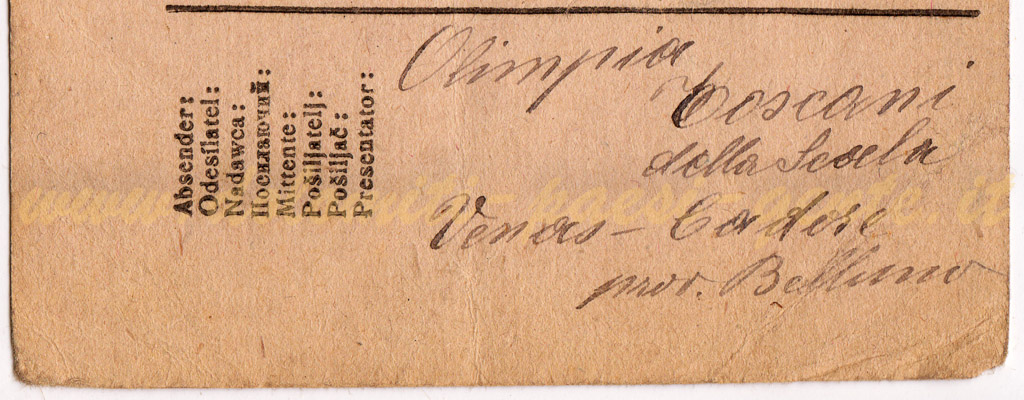 Absender:
Odesílatel:
Nadawca:
Посиляючий:
Mittente:
Pošiljatelj:
Pošiljač:
Presentator:
Olimpia
Toscani
della Scala
Venas - Cadore
prov. Belluno